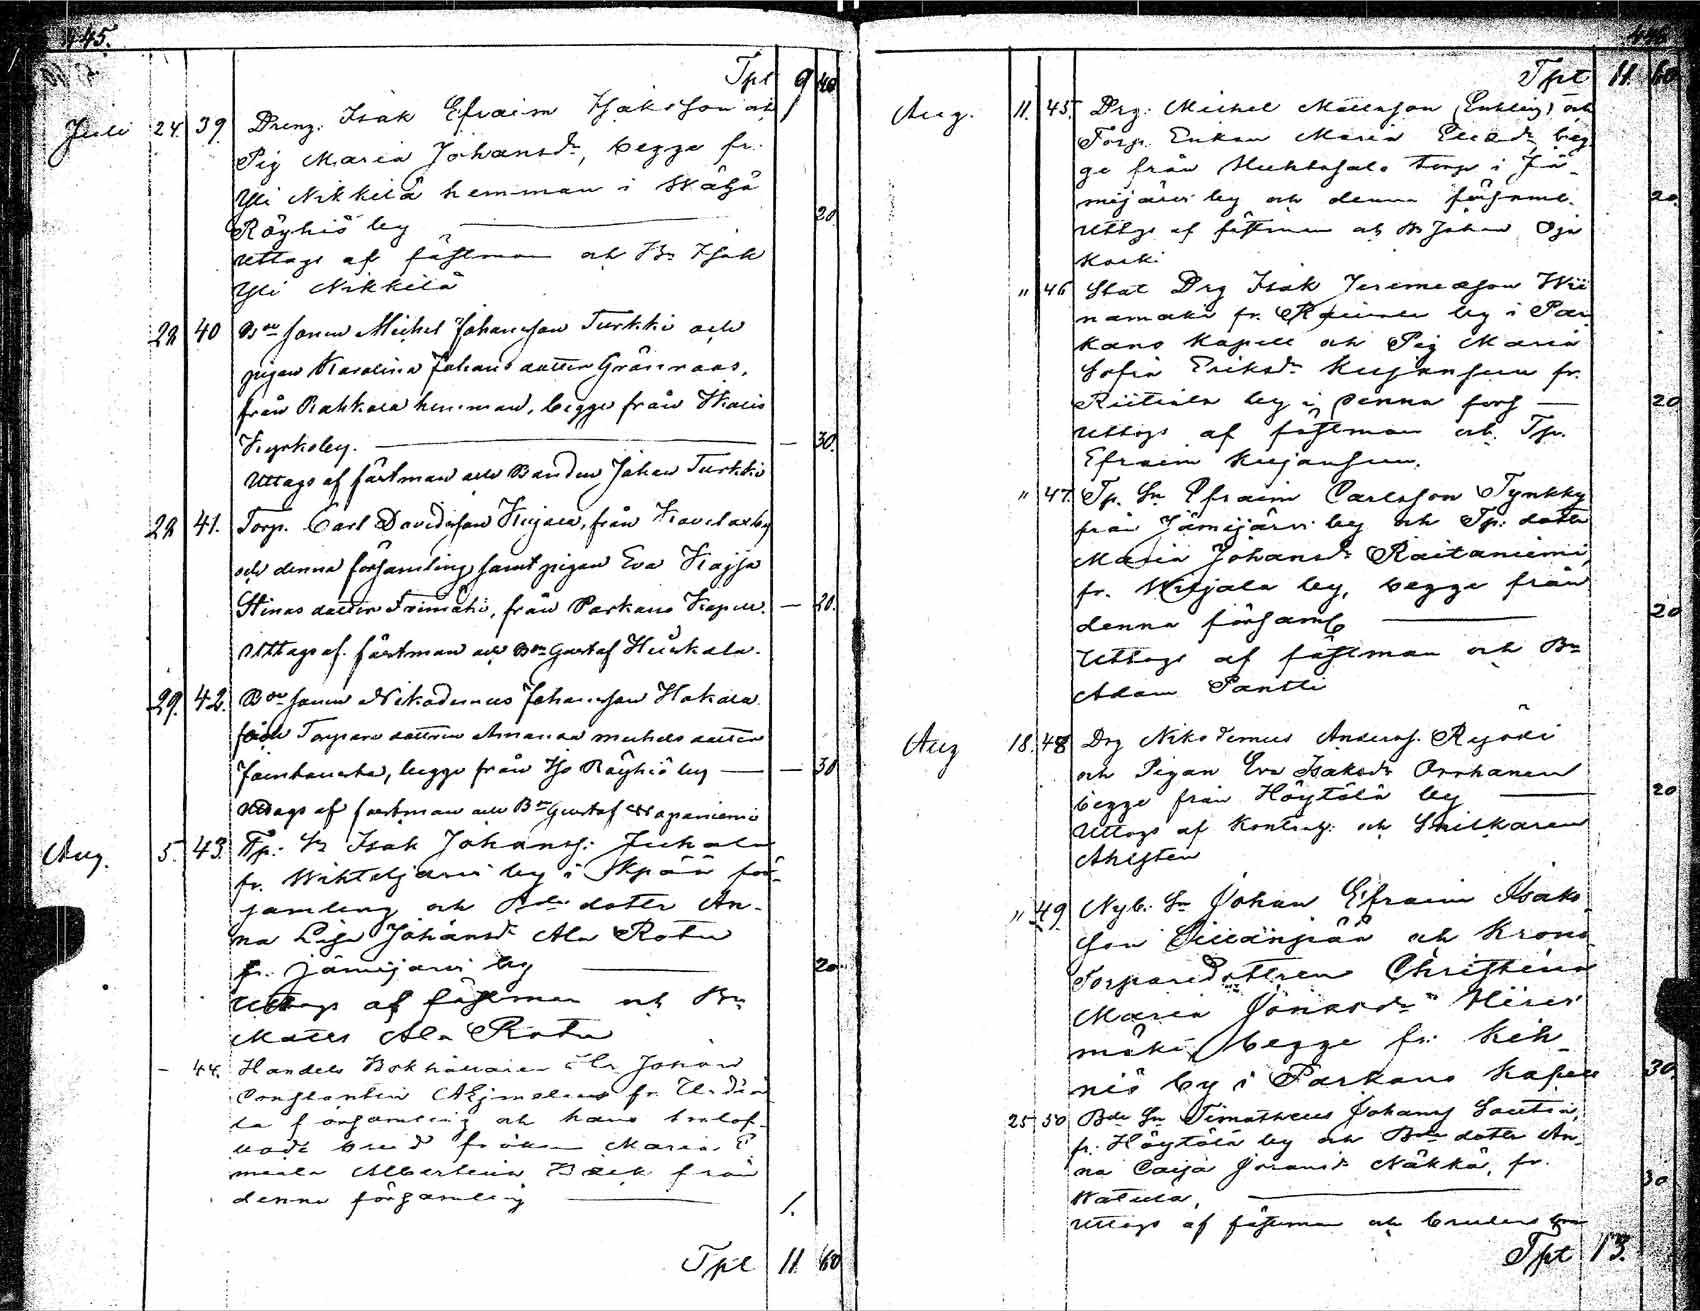 445.
Tpt 9 40
Juli 24. 39. Dreng. Isak Efraim Isaksson och
Pig Maria Johansdr, begge fr.
Yli Nikkilä hemman i
Röyhiö by — 20.
Uttogs af fästman och Bn Isak
Yli Nikkilä
28 40 Bdesonen Michel Johansson Turkki och
pigan Karolina Johansdotter Grönroos,
från Rahkola hemman, begge från Ikalis
Kyrkoby. — 30.
Uttags af fästman och Bonden Johan Turkki
28 41. Torp. Carl Davidsson, från by
och denna församling samt pigan Eva Kajsa
Stinas dotter, från Parkano Kapell. — 20.
Uttags af fästman och Bn Gustaf
29. 42. Bdesonen Nikodemus Johansson Hakala
Torpare dottren Amanda Michels dotter
begge från Röyhiö by — — 30
Uttags af fästman och Bn Gustaf
Aug. 5. 43. Tp. Sn Isak Johanss. Juhala
fr. by i för-
samling och Bde. dotter An-
na Lisa Johansdr Ala Rotu
fr. Jämijärvi by — 20.
Uttogs af fästman och Bn
Matts Ala Rotu
— 44. Handels Bokhållaren Hr Johan
Constantin fr.
församling och hans trolof-
vade brud fröken Maria E
Albertina från
denna församling — 1.
Tpt 11 60
446.
Tpt 11. 60
Aug. 11. 45. Drg. Michel Mattsson (Enkling) och
Torp. Enkan Maria beg-
ge från torp i Jä-
mijärvi by och denna församl. 20.
Uttogs af fästman och Bn Johan Oja
Koski
" 46 Stat Drg Isak Jeremiasson
fr. by i Par-
kano Kapell och Pig Maria
Sofia Eriksdr Kujansuu fr.
Riitiala by i denna fors — 20
Uttogs af fästman och Tp.
Efraim Kujansuu.
" 47. Tp. Sn Efraim Carlsson Tynkky
från Jämijärvi by och Tp. dotter
Maria Johansdr Raitaniemi,
fr. by, begge från
denna församl — 20
Uttogs af fästman och Bn
Adam Pantti
Aug 18. 48 Drg Nikodemus Anderss.
och Pigan Eva Isaksdr
begge från Höytölä by — 20
Uttogs af Kontrah. och Snikaren
Ahlsten
" 49. Nyb. Sn Johan Efraim Isaks-
son Sillanpää och Krono-
Torparedottren Christina
Maria Jonasdr
mäki, begge fr. Keh-
niö by i Parkano Kapell 30.
25 50 Bde Sn Timotheus Johanss
fr. Höytölä by och Bde dotter An-
na Caisa Näkkä, fr.
Watula, — 30
Uttogs af fästman och brudens bror
Tpt 13.